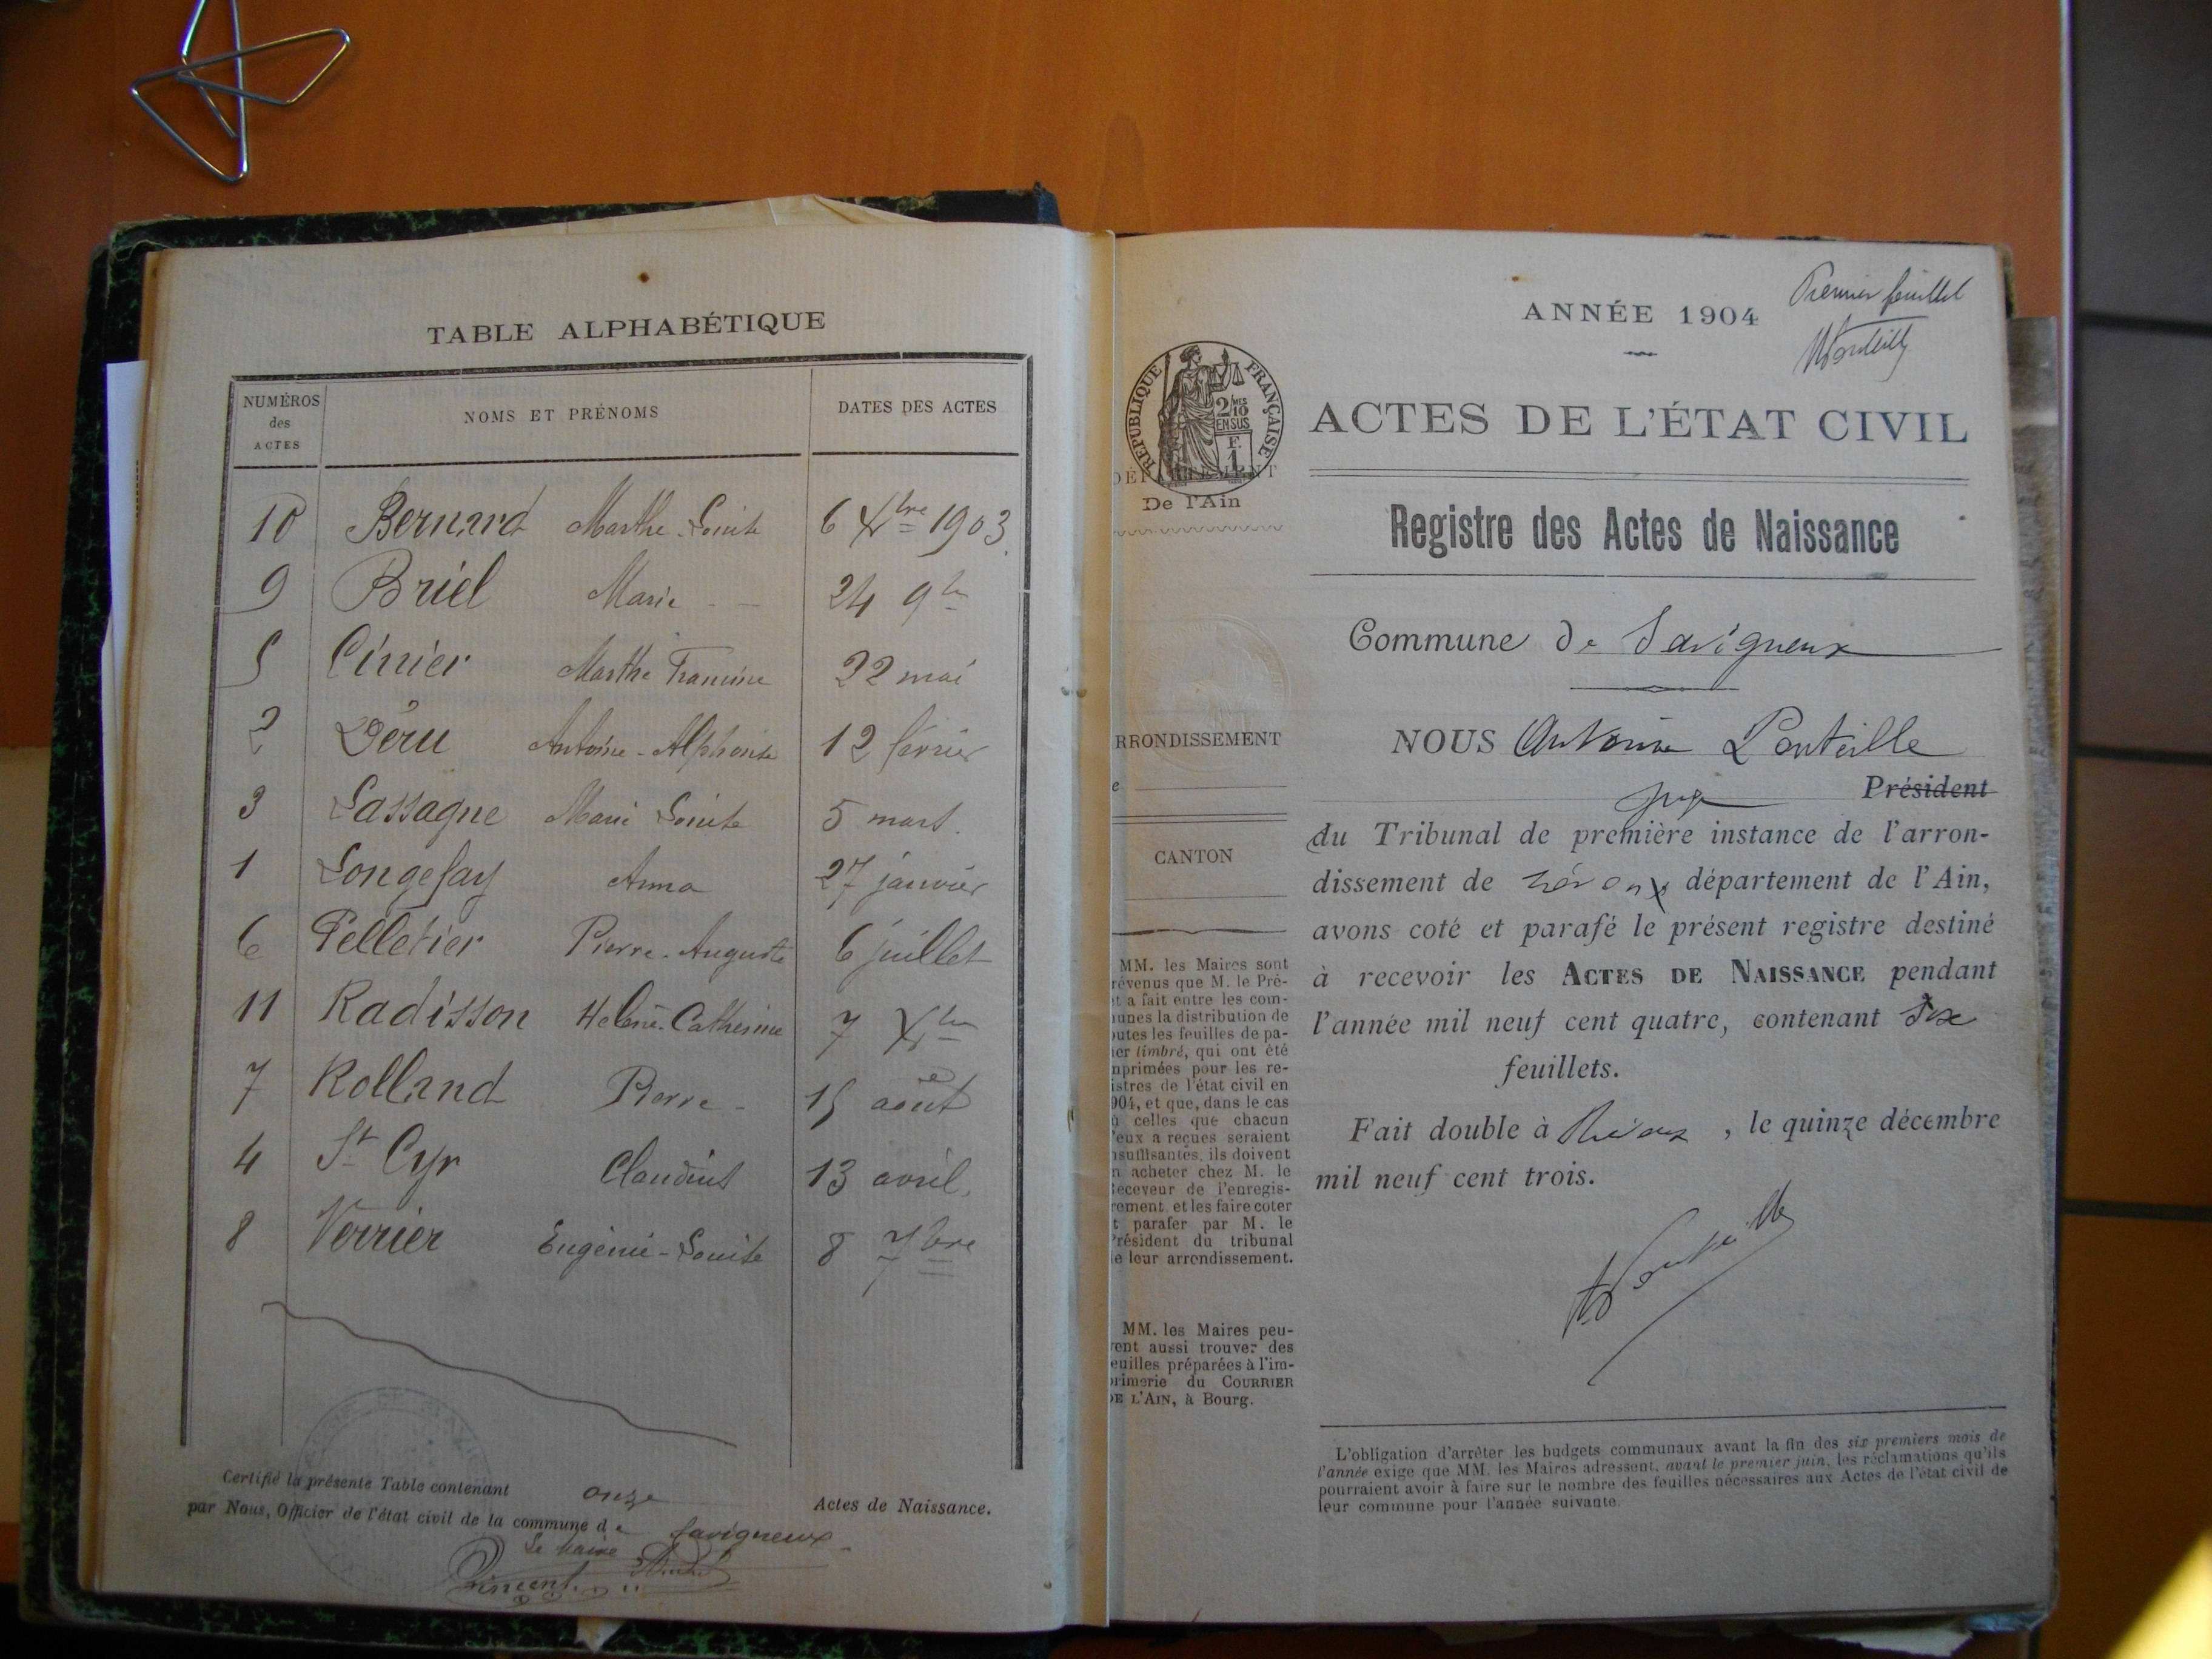 TABLE ALPHABÉTIQUE
NUMÉROS des ACTES
NOMS ET PRÉNOMS
DATES DES ACTES
10 Bernard Marthe-Louise 6 Xbre 1903
9 Briel Marie 24 9bre
5 Cinier Marthe Francine 22 mai
2 Déru Antoine-Alphonse 12 février
3 Lassagne Marie Louise 5 mars.
1 Longefay Anna 27 janvier
6 Pelletier Pierre-Auguste 6 juillet
11 Radisson Helène-Catherine 7 Xbre
7 Rolland Pierre 15 août
4 St Cyr Claudius 13 avril.
8 Verrier Eugénie-Louise 8 7bre
Certifié la présente Table contenant onze Actes de Naissance.
par Nous, Officier de l'état civil de la commune de Savigneux
Le Maire
Vincent
Premier feuillet
ANNÉE 1904
RÉPUBLIQUE FRANÇAISE
2/10 MES
EN SUS
F.
1
DÉPARTEMENT
De l'Ain
ACTES DE L'ÉTAT CIVIL
Registre des Actes de Naissance
Commune de Savigneux
RRONDISSEMENT
e
CANTON
NOUS Antoine Ponteille
juge Président
du Tribunal de première instance de l'arron-
dissement de Trévoux département de l'Ain,
avons coté et parafé le présent registre destiné
à recevoir les ACTES DE NAISSANCE pendant
l'année mil neuf cent quatre, contenant Six
feuillets.
Fait double à Trévoux, le quinze décembre
mil neuf cent trois.
MM. les Maires sont
révenus que M. le Pré-
et a fait entre les com-
unes la distribution de
outes les feuilles de pa-
ier timbré, qui ont été
mprimées pour les re-
istres de l'état civil en
904, et que, dans le cas
ù celles que chacun
'eux a reçues seraient
nsuffisantes, ils doivent
n acheter chez M. le
Receveur de l'enregis-
rement et les faire coter
t parafer par M. le
Président du tribunal
e leur arrondissement.
MM. les Maires peu-
vent aussi trouver des
euilles préparées à l'im-
primerie du COURRIER
DE L'AIN, à Bourg.
L'obligation d'arrêter les budgets communaux avant la fin des six premiers mois de
l'année exige que MM. les Maires adressent, avant le premier juin, les réclamations qu'ils
pourraient avoir à faire sur le nombre des feuilles nécessaires aux Actes de l'état civil de
leur commune pour l'année suivante.